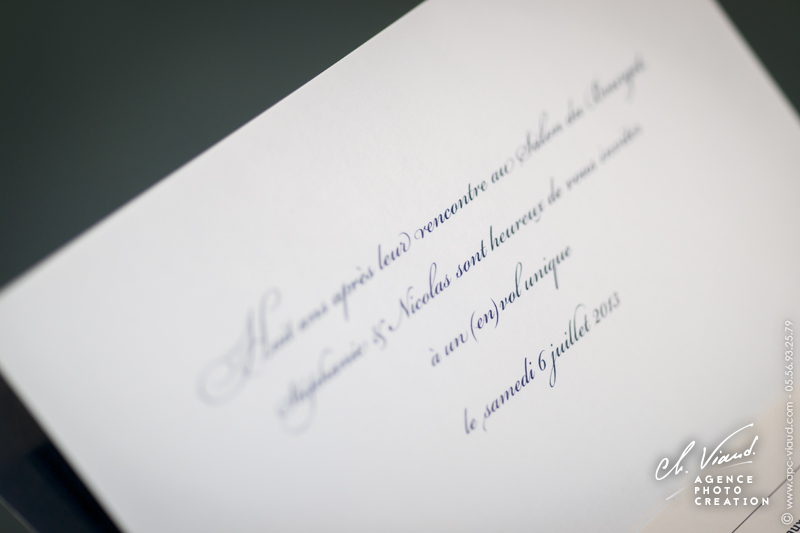 Huit ans après leur rencontre au Salon du Bourget
Stéphanie & Nicolas sont heureux de vous inviter
à un (en)vol unique
le samedi 6 juillet 2013
Ch. Viaud.
AGENCE
PHOTO
CREATION
© www.apc-viaud.com - 05.56.93.25.79